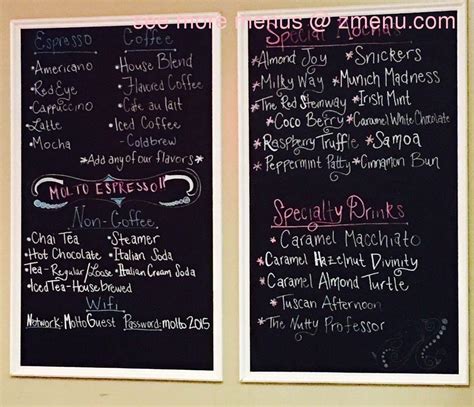 see more menus @ zmenu.com
Espresso
• Americano
• Red Eye
• Cappuccino
• Latte
• Mocha
Coffee
• House Blend
• Flavored Coffee
• Cafe au lait
• Iced Coffee
- Coldbrew
*Add any of our flavors*
MOLTO ESPRESSO!!
Non-Coffee
• Chai Tea
• Hot Chocolate
• Tea - Regular/Loose
• Iced Tea - House brewed
• Steamer
• Italian Soda
• Italian Cream Soda
Wifi
Network: MoltoGuest Password: molto2015
Special Mochas
* Almond Joy * Snickers
* Milky Way * Munich Madness
* The Red Steinway * Irish Mint
* Coco Berry * Caramel White Chocolate
* Raspberry Truffle * Samoa
* Peppermint Patty * Cinnamon Bun
Specialty Drinks
* Caramel Macchiato
* Caramel Hazelnut Divinity
* Caramel Almond Turtle
* Tuscan Afternoon
* The Nutty Professor